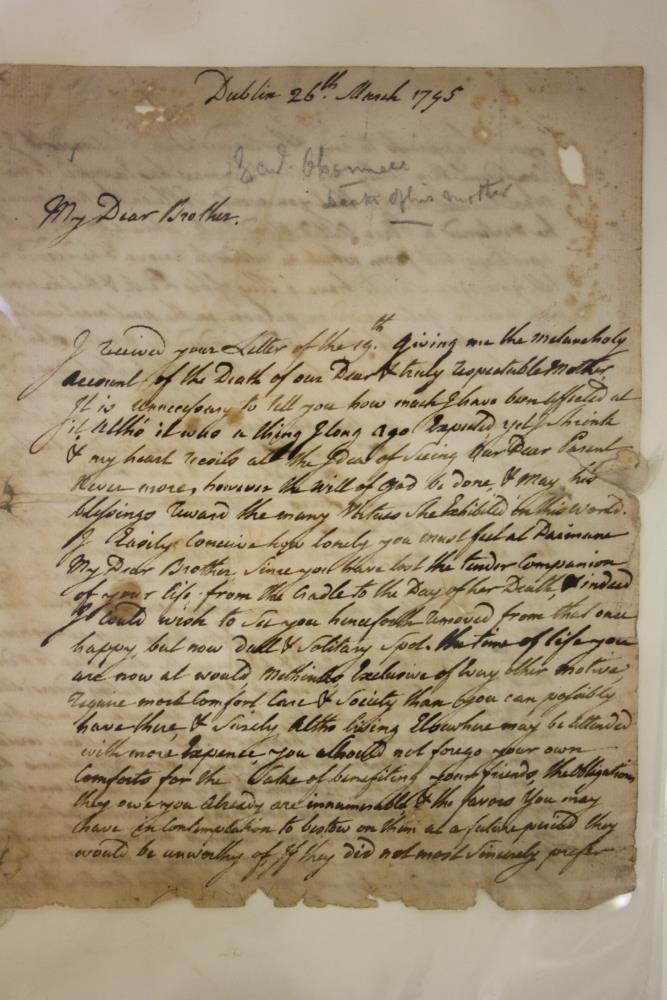 Dublin 26th March 1795
Death of his Mother
My Dear Brother.
I received your Letter of the 19th. Giving me the Melancholy
account of the Death of our Dear & truly respectable Mother
It is unnecessary to tell you how much I have been afflicted at
it. Altho' it was a thing I long ago Expected yet I shrink
& my heart recoils at the Idea of Seeing Our Dear Parent
Never more, however the will of God be done, & May his
blessings reward the many Virtues She Exhibited in this World.
I Easily Conceive how lonely you must feel at
My Dear Brother Since you have lost the tender Companion
of your life from the Cradle to the Day of her Death, & indeed
I Could wish to See you henceforth removed from that once
happy but now Dull & Solitary Spot. the time of life you
are now at would, Methinks, Exclusive of Every other motive,
require more Comfort Care & Society than you can possibly
have there, & Surely Altho living Elsewhere may be attended
with more Expence, you should not forego your own
Comforts for the Sake of benefiting your friends, the Obligations
they owe you already are innumerable & the favors You may
have in Contemplation to bestow on them at a future period they
would be unworthy of If they did not most Sincerely prefer